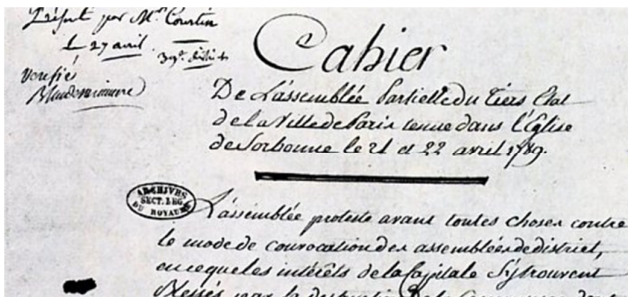 Présenté par Mr. Courtin
Le 27 avril
vérifié
Cahier
De L'assemblée Partielle du Tiers Etat
de la Ville de Paris tenue dans l'Eglise
de Sorbonne le 21 et 22 avril 1789.
ARCHIVES
SECT. LEG.
DU ROYAUME
L'assemblée proteste avant toutes choses contre
le mode de convocation des assemblées de district,
en ce que les intérêts de la Capitale s'y trouvent
blessés par la